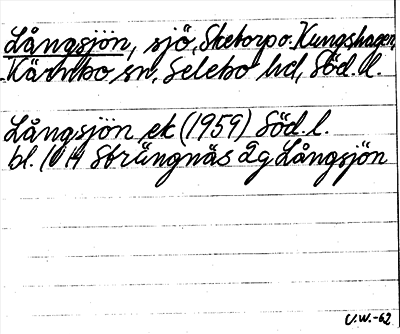 Långsjön, sjö, Sketorpo. Kungshagen,
Kärnbo sn, Selebo hd, Söd. l.
Långsjön ek (1959) Söd. l.
bl. 1014 Strängnäs 2g Långsjön
U.W.-62